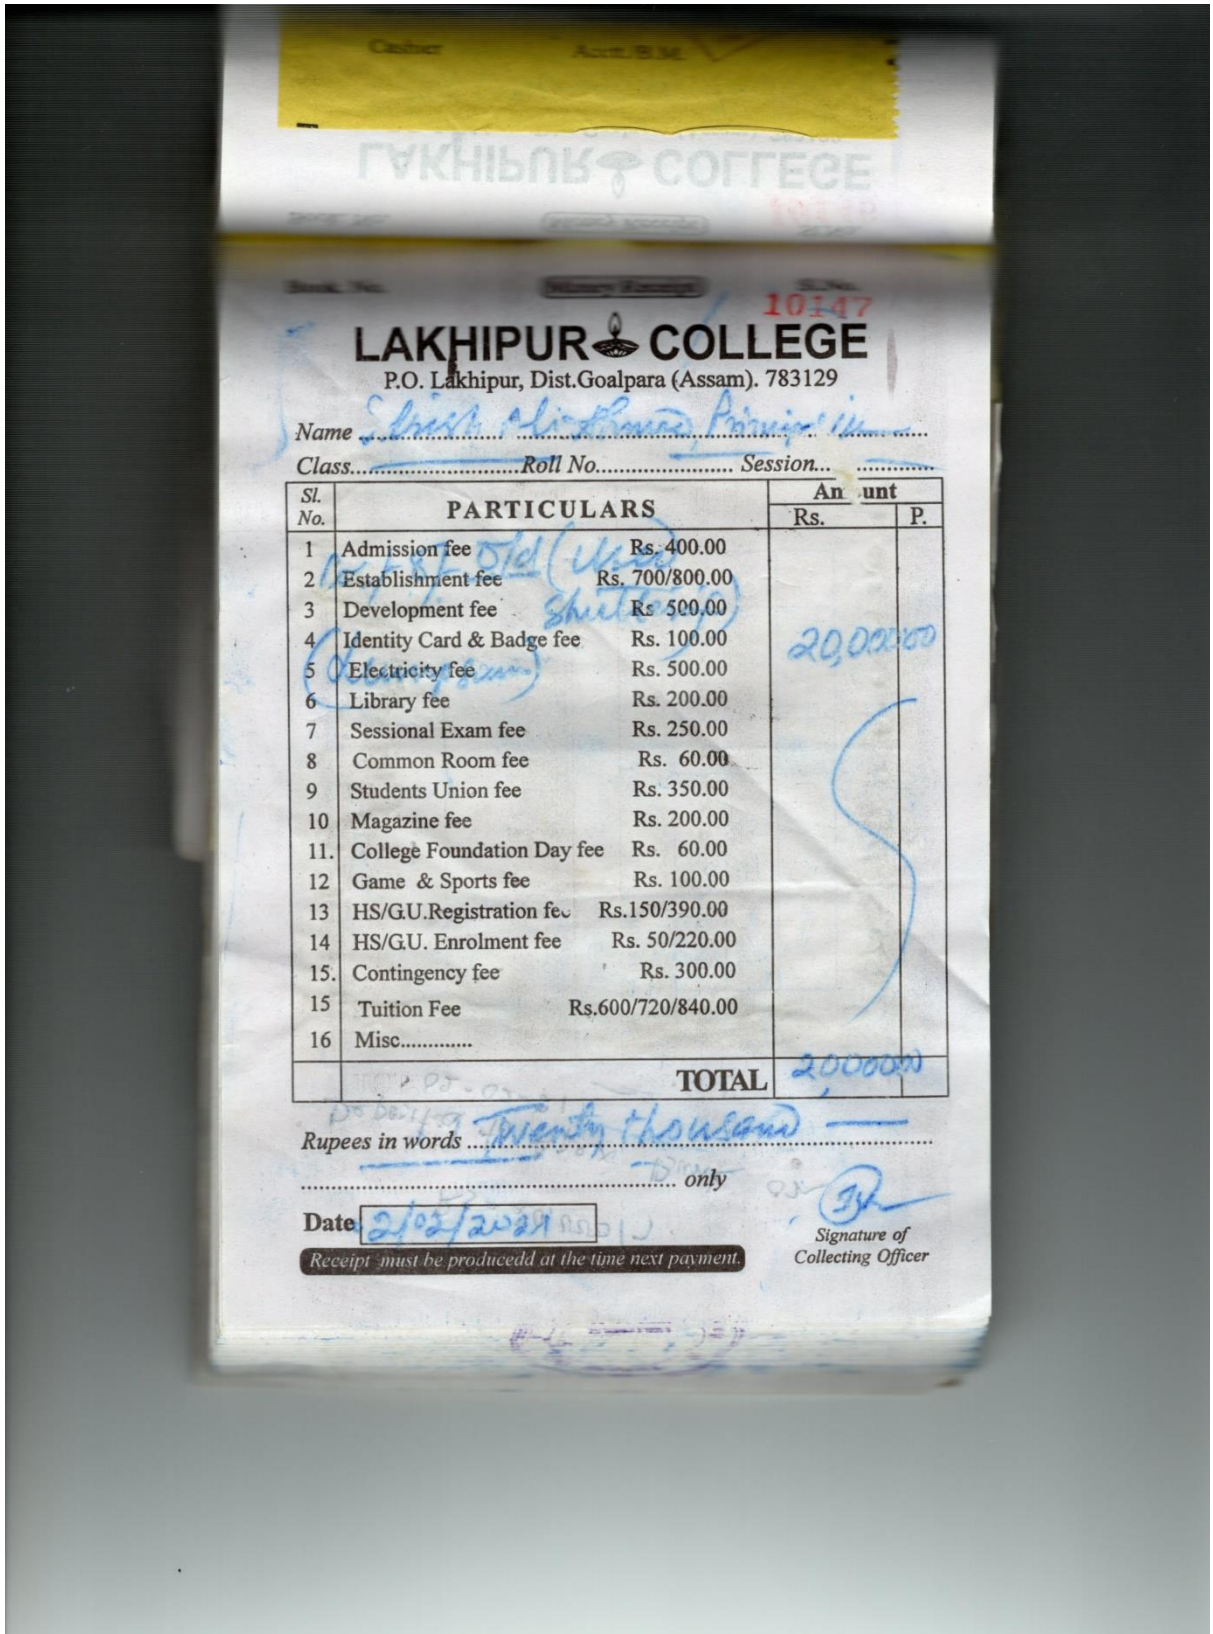 Cashier Acctt./B.M.
LAKHIPUR COLLEGE
Book No. Money Receipt Sl.No.
10147
LAKHIPUR COLLEGE
P.O. Lakhipur, Dist.Goalpara (Assam). 783129
Name
Class.............................Roll No........................ Session... ..............
Sl. No. PARTICULARS Amount
Rs. P.
1 Admission fee Rs. 400.00
2 Establishment fee Rs. 700/800.00
3 Development fee Rs 500.00
4 Identity Card & Badge fee Rs. 100.00 20,00000
5 Electricity fee Rs. 500.00
6 Library fee Rs. 200.00
7 Sessional Exam fee Rs. 250.00
8 Common Room fee Rs. 60.00
9 Students Union fee Rs. 350.00
10 Magazine fee Rs. 200.00
11. College Foundation Day fee Rs. 60.00
12 Game & Sports fee Rs. 100.00
13 HS/G.U.Registration fee Rs.150/390.00
14 HS/G.U. Enrolment fee Rs. 50/220.00
15. Contingency fee Rs. 300.00
15 Tuition Fee Rs.600/720/840.00
16 Misc.............
TOTAL 2000000
Rupees in words Twenty thousand
only
Date 2/02/2021
Signature of
Collecting Officer
Receipt must be producedd at the time next payment.